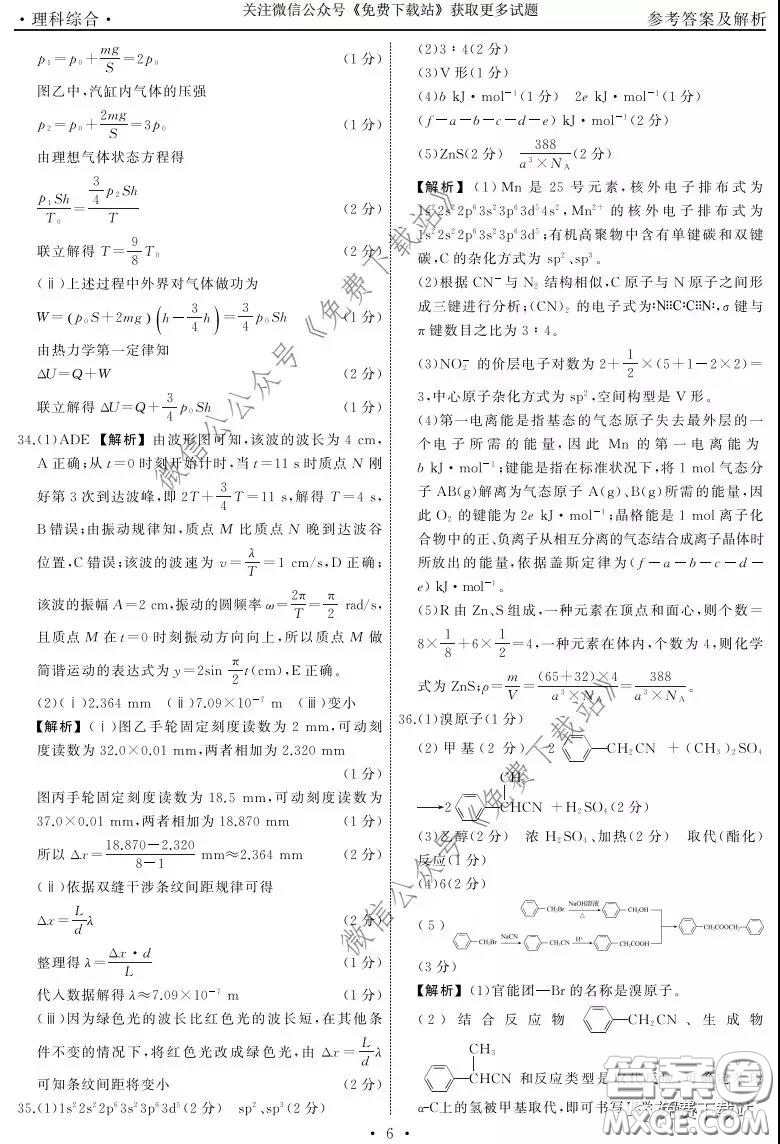 关注微信公众号《免费下载站》获取更多试题
·理科综合·
参考答案及解析
p₁=p₀+mg/S=2p₀ (1分)
图乙中,汽缸内气体的压强
p₂=p₀+2mg/S=3p₀ (1分)
由理想气体状态方程得
p₁Sh/T₀=(3/4)p₂Sh/T (2分)
联立解得 T=9/8 T₀ (2分)
(ⅱ)上述过程中外界对气体做功为
W=(p₀S+2mg)(h-3/4 h)=3/4 p₀Sh (1分)
由热力学第一定律知
ΔU=Q+W (2分)
联立解得 ΔU=Q+3/4 p₀Sh (1分)
34.(1)ADE 【解析】由波形图可知,该波的波长为 4 cm,
A 正确;从 t=0 时刻开始计时,当 t=11 s 时质点 N 刚
好第 3 次到达波峰,即 2T+3/4 T=11 s,解得 T=4 s,
B 错误;由振动规律知,质点 M 比质点 N 晚到达波谷
位置,C 错误;该波的波速为 v=λ/T=1 cm/s,D 正确;
该波的振幅 A=2 cm,振动的圆频率 ω=2π/T=π/2 rad/s,
且质点 M 在 t=0 时刻振动方向向上,所以质点 M 做
简谐运动的表达式为 y=2sin π/2 t(cm),E 正确。
(2)(ⅰ)2.364 mm (ⅱ)7.09×10⁻⁷ m (ⅲ)变小
【解析】(ⅰ)图乙手轮固定刻度读数为 2 mm,可动刻
度读数为 32.0×0.01 mm,两者相加为 2.320 mm
(1分)
图丙手轮固定刻度读数为 18.5 mm,可动刻度读数为
37.0×0.01 mm,两者相加为 18.870 mm (1分)
所以 Δx=(18.870-2.320)/(8-1) mm≈2.364 mm (2分)
(ⅱ)依据双缝干涉条纹间距规律可得
Δx=L/d λ (2分)
整理得 λ=Δx·d/L (1分)
代入数据解得 λ≈7.09×10⁻⁷ m (1分)
(ⅲ)因为绿色光的波长比红色光的波长短,在其他条
件不变的情况下,将红色光改成绿色光,由 Δx=L/d λ
可知条纹间距将变小 (2分)
35.(1)1s²2s²2p⁶3s²3p⁶3d⁵(2分) sp²、sp³(2分)
(2)3∶4(2分)
(3)V 形(1分)
(4)b kJ·mol⁻¹(1分) 2e kJ·mol⁻¹(1分)
(f-a-b-c-d-e) kJ·mol⁻¹(2分)
(5)ZnS(2分) 388/(a³×N_A)(2分)
【解析】(1)Mn 是 25 号元素,核外电子排布式为
1s²2s²2p⁶3s²3p⁶3d⁵4s²,Mn²⁺ 的核外电子排布式为
1s²2s²2p⁶3s²3p⁶3d⁵;有机高聚物中含有单键碳和双键
碳,C 的杂化方式为 sp²、sp³。
(2)根据 CN⁻ 与 N₂ 结构相似,C 原子与 N 原子之间形
成三键进行分析;(CN)₂ 的电子式为:N⫶⫶C:C⫶⫶N:,σ 键与
π 键数目之比为 3∶4。
(3)NO₂⁻ 的价层电子对数为 2+1/2×(5+1-2×2)=
3,中心原子杂化方式为 sp²,空间构型是 V 形。
(4)第一电离能是指基态的气态原子失去最外层的一
个电子所需的能量,因此 Mn 的第一电离能为
b kJ·mol⁻¹;键能是指在标准状况下,将 1 mol 气态分
子 AB(g)解离为气态原子 A(g)、B(g)所需的能量,因
此 O₂ 的键能为 2e kJ·mol⁻¹;晶格能是 1 mol 离子化
合物中的正、负离子从相互分离的气态结合成离子晶体时
所放出的能量,依据盖斯定律为(f-a-b-c-d-
e) kJ·mol⁻¹。
(5)R 由 Zn、S 组成,一种元素在顶点和面心,则个数=
8×1/8+6×1/2=4,一种元素在体内,个数为 4,则化学
式为 ZnS;ρ=m/V=(65+32)×4/(a³×N_A)=388/(a³×N_A)。
36.(1)溴原子(1分)
(2)甲基(2分) 2 —CH₂CN +(CH₃)₂SO₄
CH₃
→2 CHCN +H₂SO₄(2分)
(3)乙醇(2分) 浓 H₂SO₄、加热(2分) 取代(酯化)
反应(1分)
(4)6(2分)
—CH₂Br NaOH溶液 △ —CH₂OH
(5) —CH₂COOCH₂—
—CH₂Br NaCN —CH₂CN H⁺ —CH₂COOH
(3分)
【解析】(1)官能团—Br 的名称是溴原子。
(2)结合反应物 —CH₂CN 、生成物
CH₃
CHCN 和反应类型是
α-C上的氢被甲基取代,即可书写
· 6 ·
微信公众号《免费下载站》
微信公众号《免费下载站》
答案圈